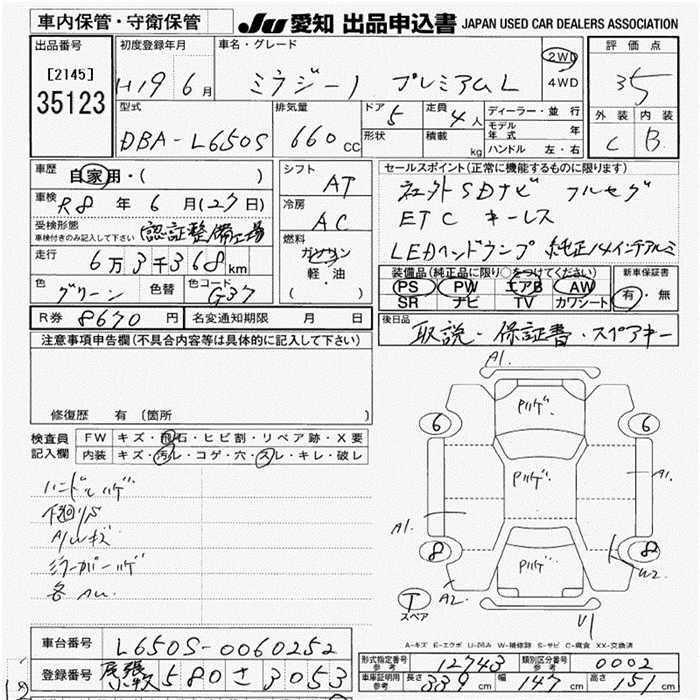 車内保管・守衛保管 JU 愛知 出品申込書 JAPAN USED CAR DEALERS ASSOCIATION
出品番号 初度登録年月 車名・グレード 評価点
[2145] H19 6月 ミラジーノ プレミアムL 2WD 35
35123 4WD
外装 内装
C B
型式 排気量 ドア 5 定員 4人 ディーラー・並行
DBA-L650S 660cc 形状 積載 kg モデル年式 年
ハンドル 左・右
車歴 自家用・( ) シフト AT セールスポイント(正常に機能するものに限ります)
車検 R8年 6月(27日) 冷房 AC 社外SDナビ フルセグ
受検形態 認証整備工場 ETC キーレス
車検付きのみ記入して下さい 燃料 LEDヘッドランプ 純正14インチアルミ
走行 6万3千368km ガソリン
軽・油
( )
装備品(純正品に限り○をつけてください) 新車保証書
色 グリーン 色替 色コード G37 PS PW エアB AW 有・無
SR ナビ TV カワシート
R券 8670円 名変通知期限 月 日 後日品
取説・保証書・スペアキー
注意事項申告欄(不具合内容等は具体的に記入して下さい)
修復歴 有(箇所
検査員 FW キズ・飛石・ヒビ割・リペア跡・X要
記入欄 内装 キズ・汚レ・コゲ・穴・スレ・キレ・破レ
ハンドルハゲ
下廻りS
A/Wキズ
ミラーカバーハゲ
A1.
Pハゲ
6 6
Pハゲ A1.
A1.
8 8
Pハゲ W2
A2
T
スペア
U1
A-キズ E-エクボ U-凹み W-補修跡 S-サビ C-腐食 XX-交換済
車台番号 L650S-0060252
登録番号 尾張小牧 580 さ 3053
形式指定番号 参考 12743 類別区分番号 参考 0002
車庫証明用 参考 長さ 339cm 幅 147cm 高さ 151cm